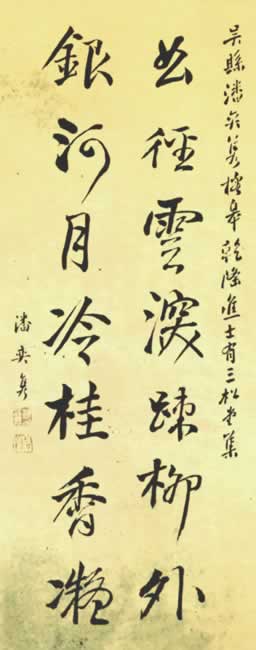 吳縣潘奕雋榕皋乾隆進士有三松堂集
徑雲深疎柳外
銀河月冷桂香凝
潘奕雋